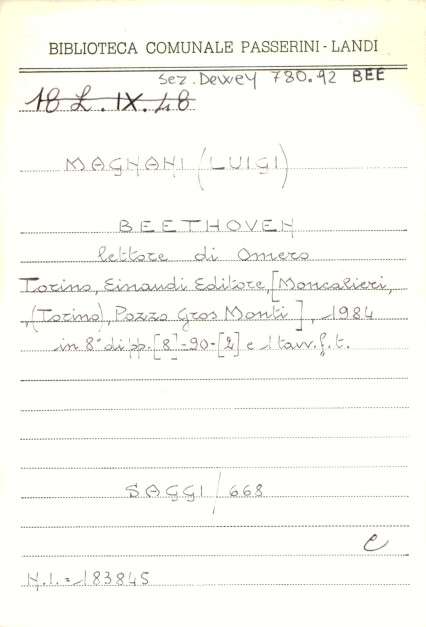 BIBLIOTECA COMUNALE PASSERINI-LANDI
Sez. Dewey 780.92 BEE
18 L. IX. 48
MAGNANI (LUIGI)
BEETHOVEN
lettore di Omero
Torino, Einaudi Editore, [Moncalieri,
(Torino), Pozzo Gros Monti], 1984
in 8° di pp. [8]-90-[2] e 1 tavv. f. t.
SAGGI / 668
e
N.I. = 183845